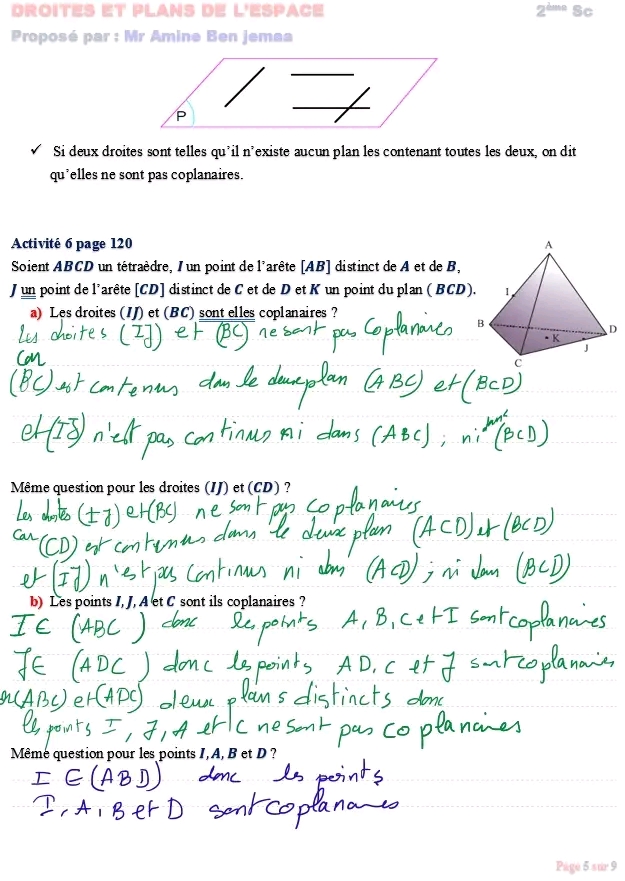 DROITES ET PLANS DE L'ESPACE 2ème Sc
Proposé par : Mr Amine Ben jemaa
P
✓ Si deux droites sont telles qu'il n'existe aucun plan les contenant toutes les deux, on dit
qu'elles ne sont pas coplanaires.
Activité 6 page 120
Soient ABCD un tétraèdre, I un point de l'arête [AB] distinct de A et de B,
J un point de l'arête [CD] distinct de C et de D et K un point du plan ( BCD).
a) Les droites (IJ) et (BC) sont elles coplanaires ?
A
I
B
D
K
J
C
Les droites (IJ) et (BC) ne sont pas Coplanaires
Car
(BC) est contenus dans le deux plan (ABC) et (BCD)
et (IJ) n'est pas continus ni dans (ABC) ; ni dans (BCD)
Même question pour les droites (IJ) et (CD) ?
Les droites (IJ) et (BC) ne sont pas coplanaires
Car (CD) est contenus dans le deux plan (ACD) et (BCD)
et (IJ) n'est pas continus ni dans (ACD) ; ni dans (BCD)
b) Les points I, J, A et C sont ils coplanaires ?
I ∈ (ABC) donc les points A, B, C et I sont coplanaires
J ∈ (ADC) donc les points A D, C et J sont coplanaires
(ABC) et (ADC) deux plans distincts donc
les points I, J, A et C ne sont pas coplanaires
Même question pour les points I, A, B et D ?
I ∈ (ABD) donc les points
I, A, B et D sont coplanaires
Page 5 sur 9